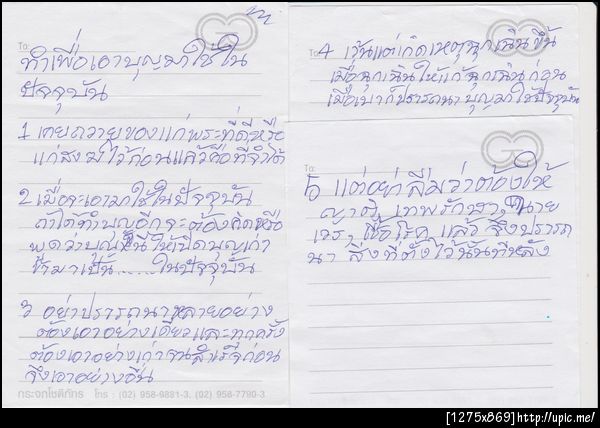 ทำเพื่อเอาบุญมาใช้ใน
ปัจจุบัน
1 เคยถวายของแก่พระที่ดีหรือ
แก่สงฆ์ไว้ก่อนแล้วคือที่จำได้
2 เมื่อจะเอามาใช้ในปัจจุบัน
ถ้าได้ทำบุญอีกจะต้องคิดหรือ
พูดว่าบุญนี้ให้เปิดบุญเก่า
ข้ามาเป็น......ในปัจจุบัน
3 อย่าปรารถนาหลายอย่าง
ต้องเอาอย่างเดียวและทุกครั้ง
ต้องเอาอย่างเก่าจนสำเร็จก่อน
จึงเอาอย่างอื่น
กระจกโชติภัทร โทร : (02) 958-9881-3, (02) 958-7790-3
To:
4 เว้นแต่เกิดเหตุฉุกเฉินขึ้น
เมื่อฉุกเฉินให้แก้ฉุกเฉินก่อน
เมื่อเบาก็ปรารถนาบุญมาใช้ปัจจุบัน
To:
5 แต่อย่าลืมว่าต้องให้
ญาติ เทพรักษา นาย
เวร เชื้อโรค แล้ว จึงปรารถ
นา สิ่งที่ตั้งไว้นั้นทีหลัง
[1275x869]http://upic.me/